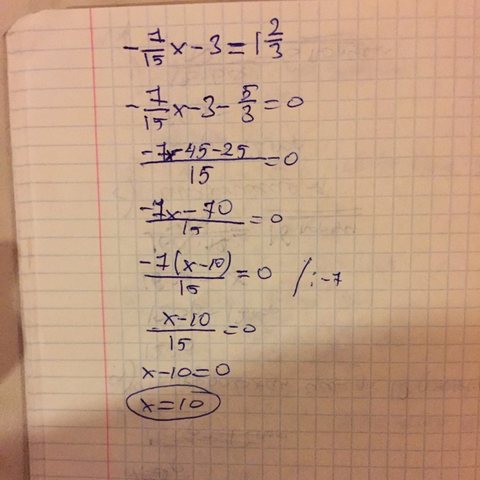 -7/15 x - 3 = 1 2/3
-7/15 x - 3 - 5/3 = 0
(-7x - 45 - 25)/15 = 0
(-7x - 70)/15 = 0
(-7(x - 10))/15 = 0 /: -7
(x - 10)/15 = 0
x - 10 = 0
x = 10